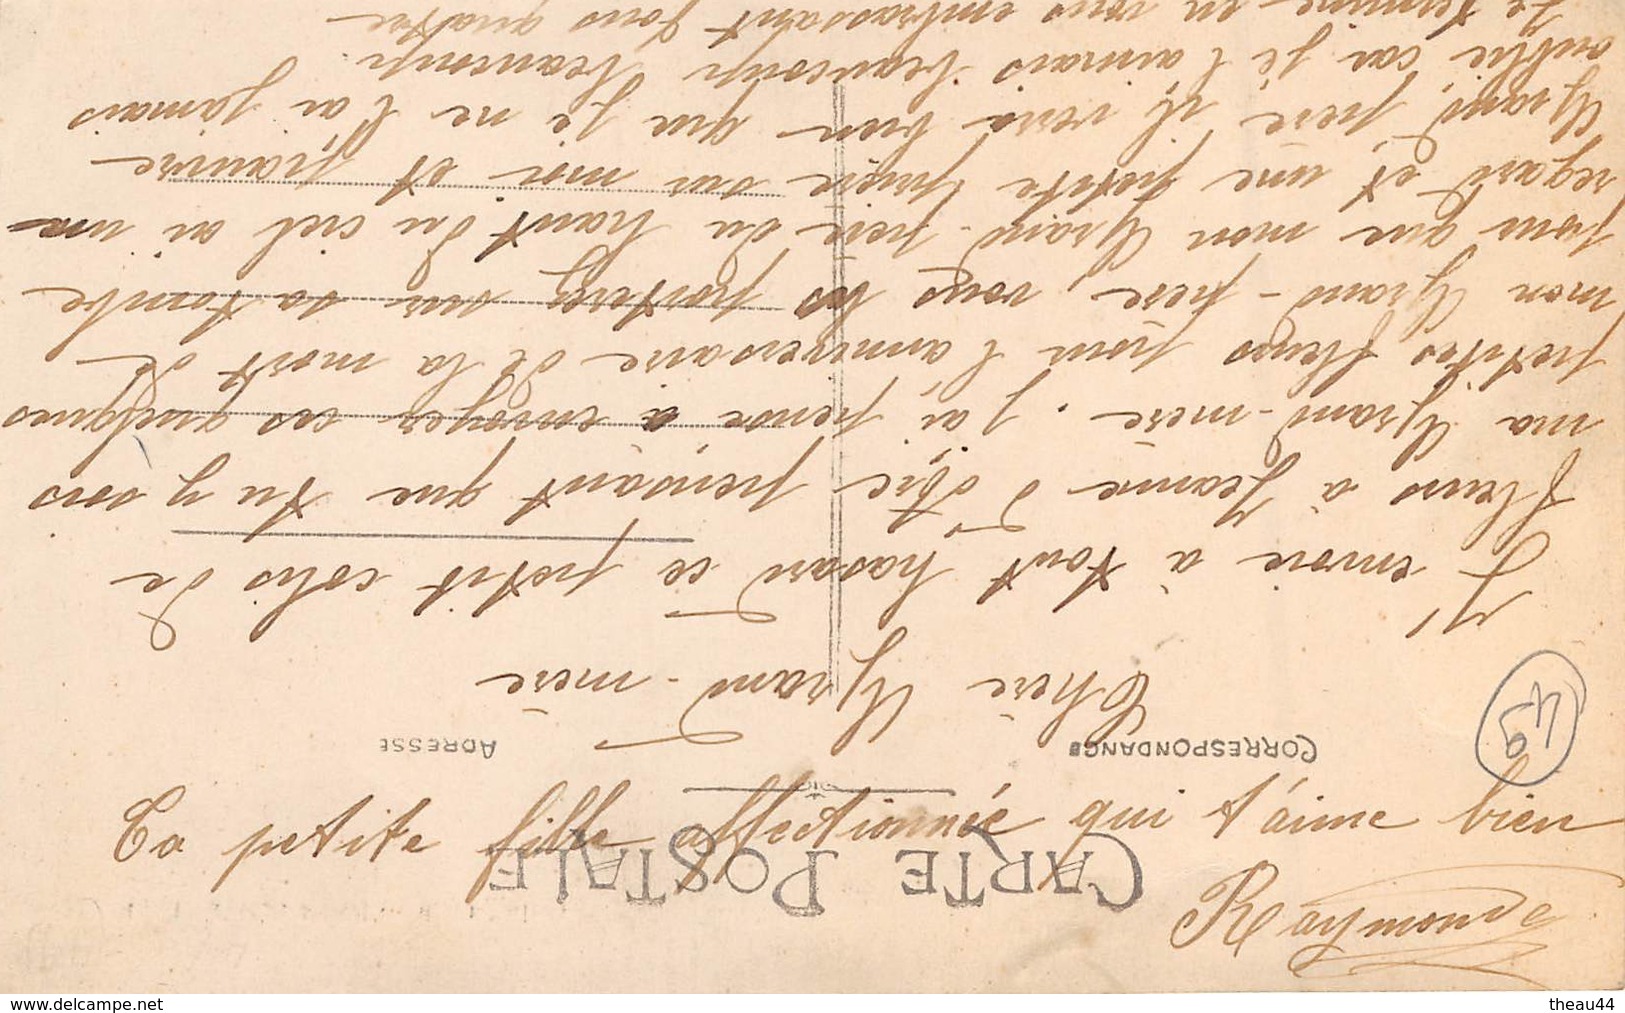 CARTE POSTALE
CORRESPONDANCE
ADRESSE
Chère Grand-mère
J'envoie à tout hasard ce petit colis de
fleurs à Jeanne d'être pensant que tu y vois
ma Grand-mère. J'ai pensé à envoyer ces quelques
petites fleurs pour l'anniversaire de la mort de
mon Grand-père, vous les porterez sur sa tombe
pour que mon Grand-père du haut du ciel ai un
regard et une petite prière sur moi et pauvre
Grand, père il verra bien que je ne l'ai jamais
oublié car je l'aimais beaucoup beaucoup.
Je termine en vous embrassant tous quatre
Ta petite fille affectionnée qui t'aime bien
Raymonde
49
www.delcampe.net
theau44